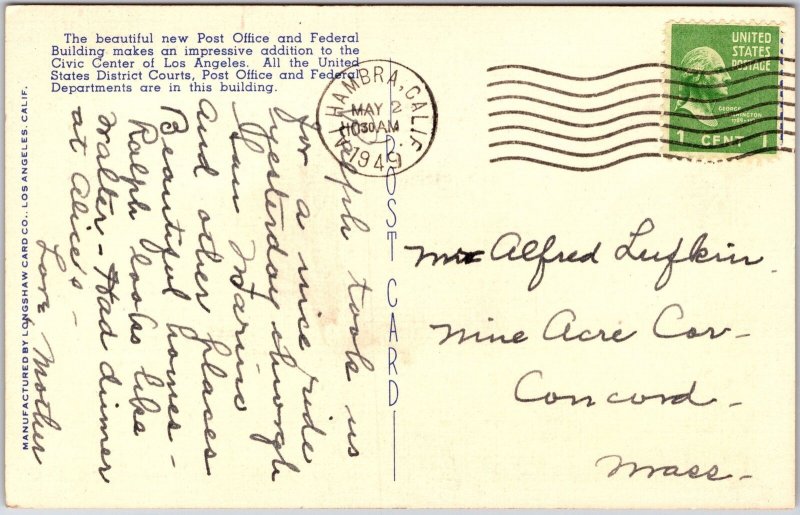 The beautiful new Post Office and Federal
Building makes an impressive addition to the
Civic Center of Los Angeles. All the United
States District Courts, Post Office and Federal
Departments are in this building.
MANUFACTURED BY LONGSHAW CARD CO., LOS ANGELES, CALIF.
POST CARD
ALHAMBRA, CALIF.
MAY 2
1030 AM
1949
UNITED
STATES
POSTAGE
GEORGE
WASHINGTON
1789-1797
1 CENT 1
Ralph took us
for a nice ride
yesterday through
San Marino
and other places
Beautiful homes -
Ralph looks like
Walter - Had dinner
at Alice's -
Love Mother
Mr Alfred Lufkin
Nine Acre Cor-
Concord -
Mass -